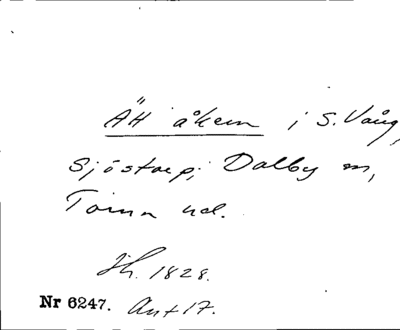 ÄH åkern i S. Vång,
Sjöstorp, Dalby sn,
Torna hd.
Jh. 1828.
Nr 6247. Ant 17.